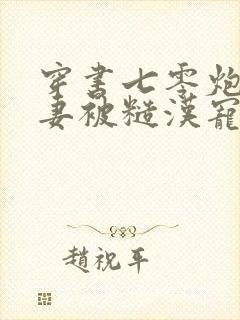 穿书七零炮
妻被糙漢寵
趙祝平